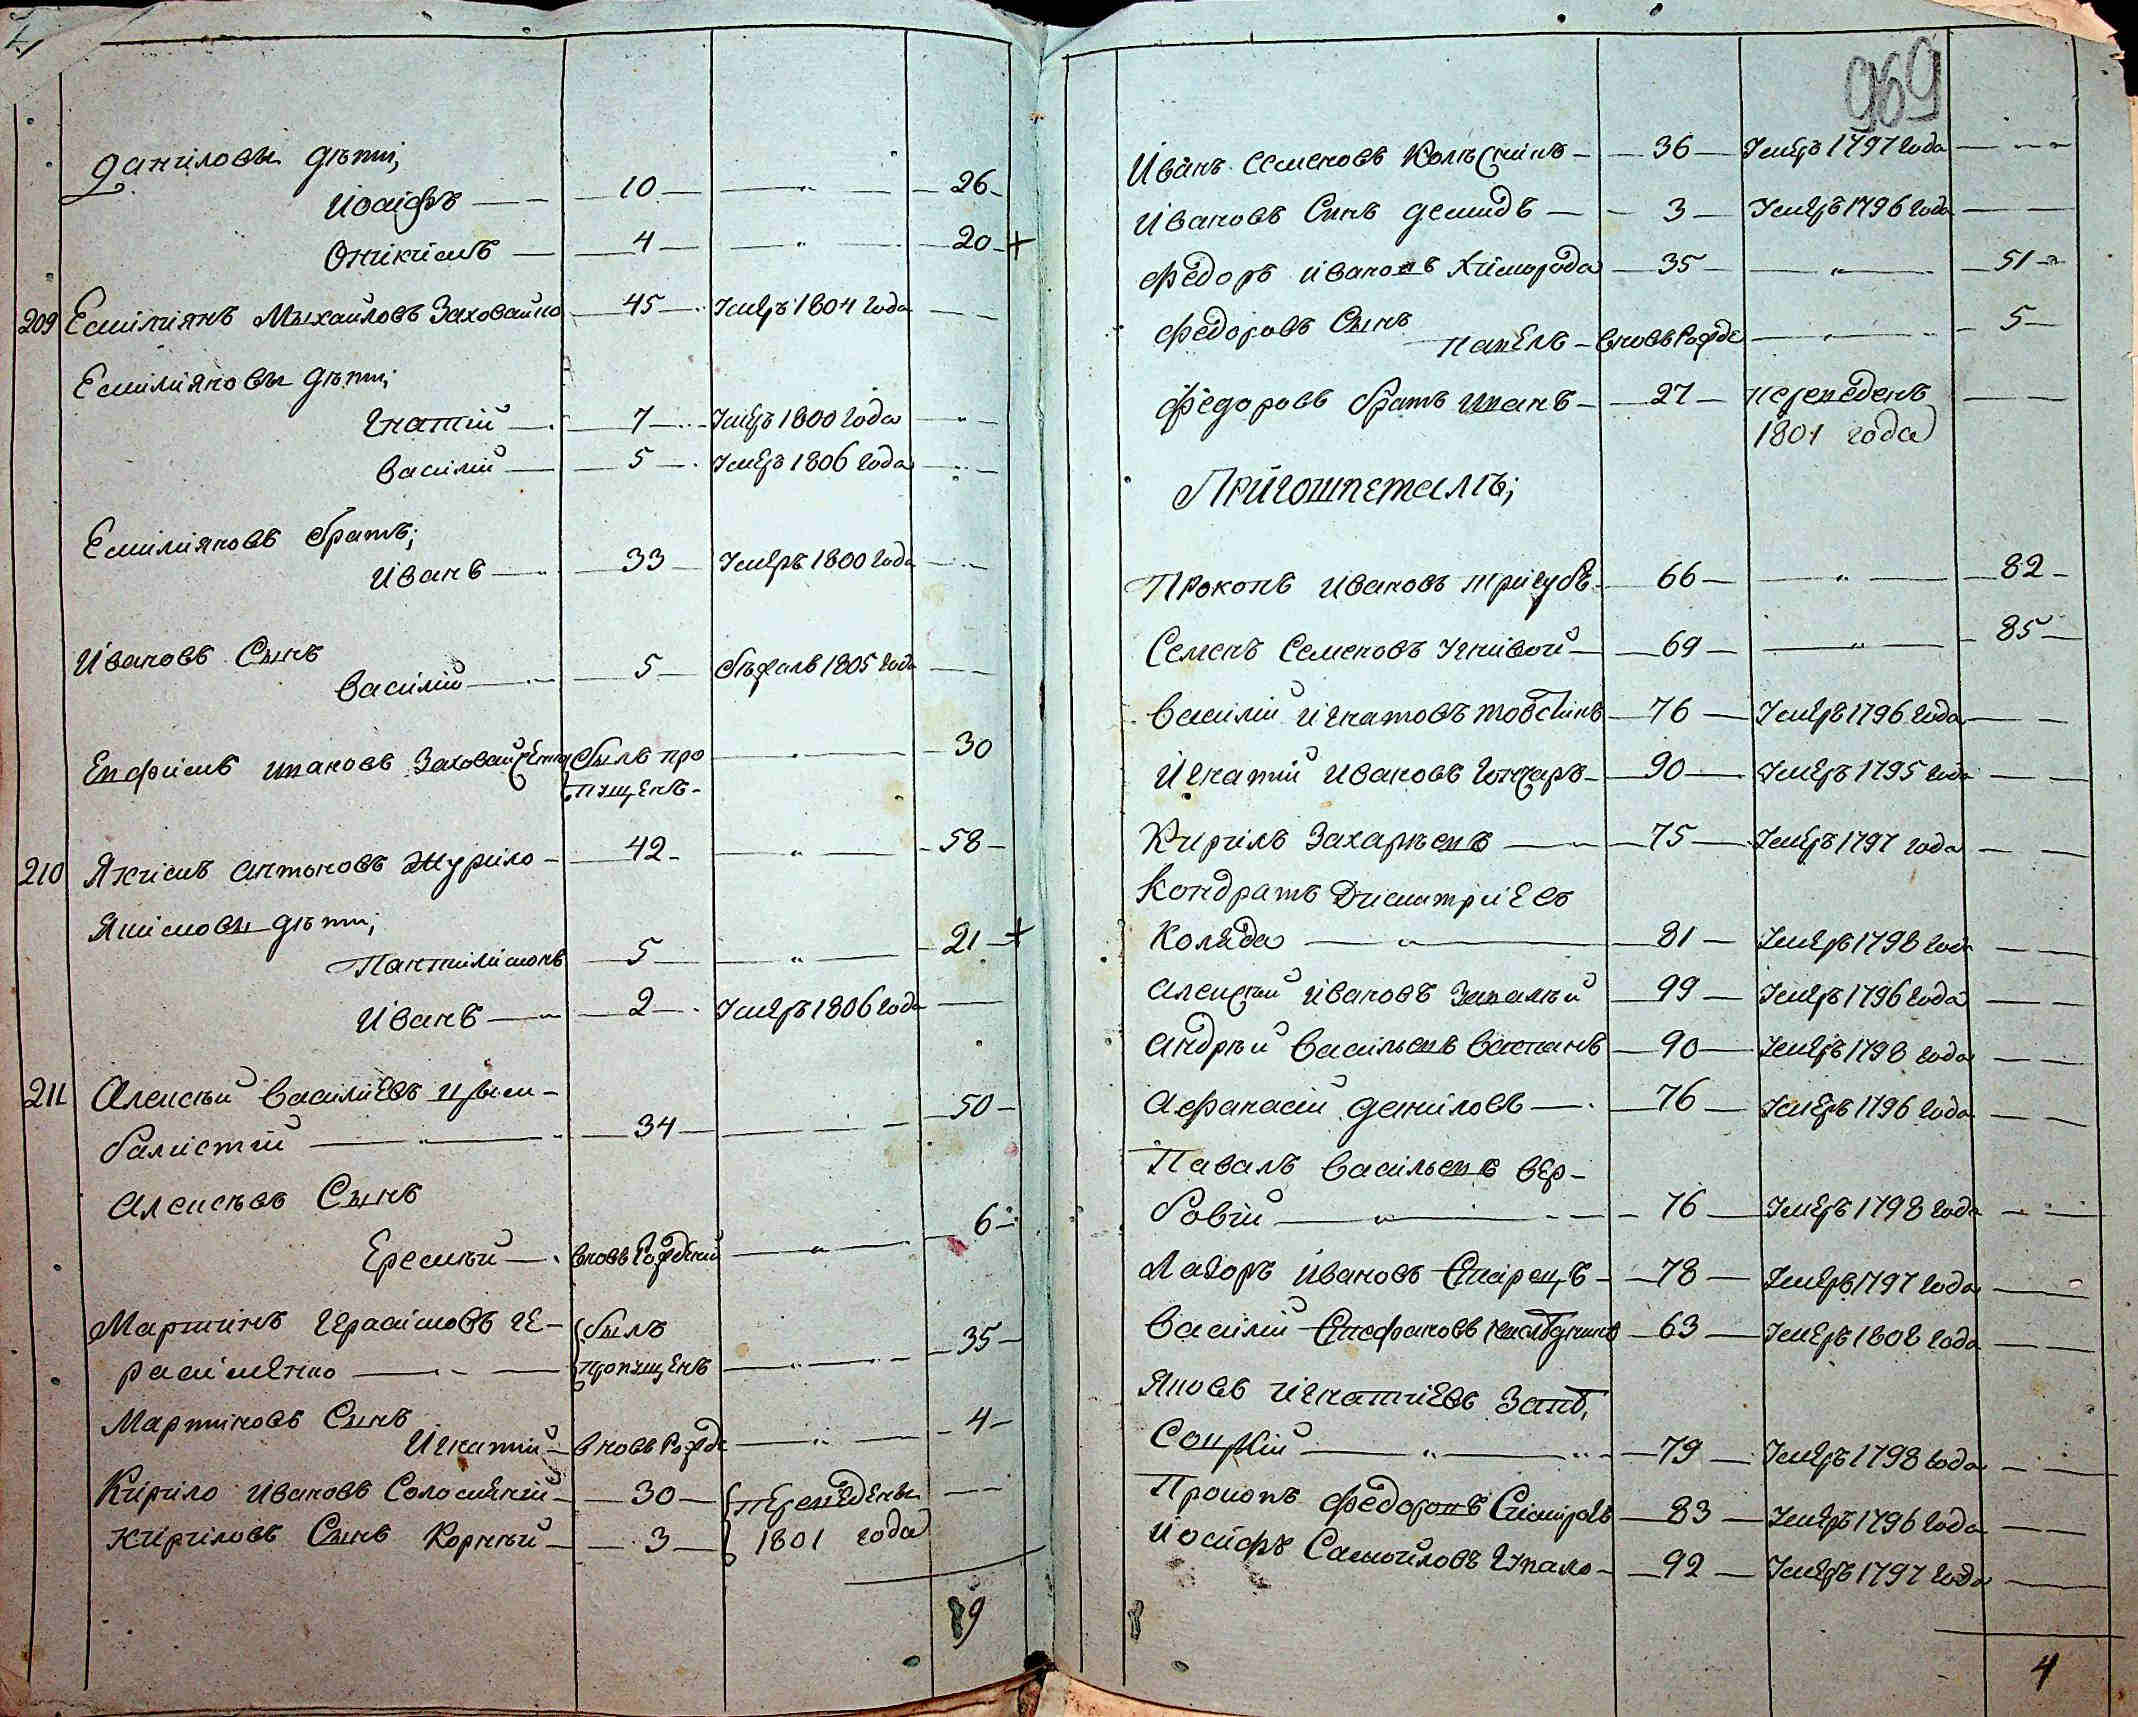 969
Даниловы дѣти;
Иосифъ — 10 — „ — 26
Оникимъ — 4 — „ — 20 +
209 Емилиянъ Мыхайловъ Заховайко — 45 — Умеръ 1804 года — —
Емилияновы дѣти;
Игнатий — 7 — Умеръ 1800 года — —
Василий — 5 — Умеръ 1806 года — —
Емилияновъ братъ;
Иванъ — 33 — Умеръ 1800 года — —
Ивановъ Сынъ
Василий — 5 — 1805 года — —
Евфимъ Ивановъ былъ про — „ — 30
пущенъ
210 Якимъ Антоновъ Журило — 42 — „ — 58
Якимовы дѣти;
Пантилимонъ — 5 — „ — 21 +
Иванъ — 2 — Умеръ 1806 года — —
211 Алексѣй Василиевъ Цым-
балистий — „ — 34 — — 50
Алексѣевъ Сынъ
Еремѣй — вновь рожденій — „ — 6
Мартинъ Герасимовъ Ге- былъ
расименко — пропущенъ — „ — 35
Мартиновъ Сынъ
Игнатий — вновь рожде — „ — 4
Кирило Ивановъ — 30 — переведены — —
Кириловъ Сынъ Корнѣй — 3 — 1801 года
9
Иванъ Семеновъ — 36 — Умеръ 1797 года — —
Ивановъ Сынъ Демидъ — 3 — Умеръ 1796 года — —
Федоръ Ивановъ — 35 — „ — 51
Федоровъ Сынъ
Павелъ — вновь рожде — „ — 5
Федоровъ братъ Иванъ — 27 — переведенъ — —
1801 года
Пригошпеталѣ;
Прокопъ Ивановъ Тригубъ — 66 — „ — 82
Семенъ Семеновъ — 69 — „ — 85
Василий Игнатовъ Товстикъ — 76 — Умеръ 1796 года — —
Игнатий Ивановъ Гончаръ — 90 — Умеръ 1795 года — —
Кирилъ Захарьевъ — 75 — Умеръ 1797 года — —
Кондратъ Дмитриевъ
Коляда — „ — 81 — Умеръ 1798 года — —
Алексѣй Ивановъ — 99 — Умеръ 1796 года — —
Андрѣй Васильевъ — 90 — Умеръ 1798 года — —
Афанасий Даниловъ — 76 — Умеръ 1796 года — —
Павалъ Васильевъ Вер-
бовий — „ — 76 — Умеръ 1798 года — —
Лазоръ Ивановъ — 78 — Умеръ 1797 года — —
Василий Стефановъ — 63 — Умеръ 1808 года — —
Яковъ Игнатиевъ
— „ — 79 — Умеръ 1798 года — —
Прокопъ Федоровъ — 83 — Умеръ 1796 года — —
Иосифъ Самойловъ — 92 — Умеръ 1797 года — —
4